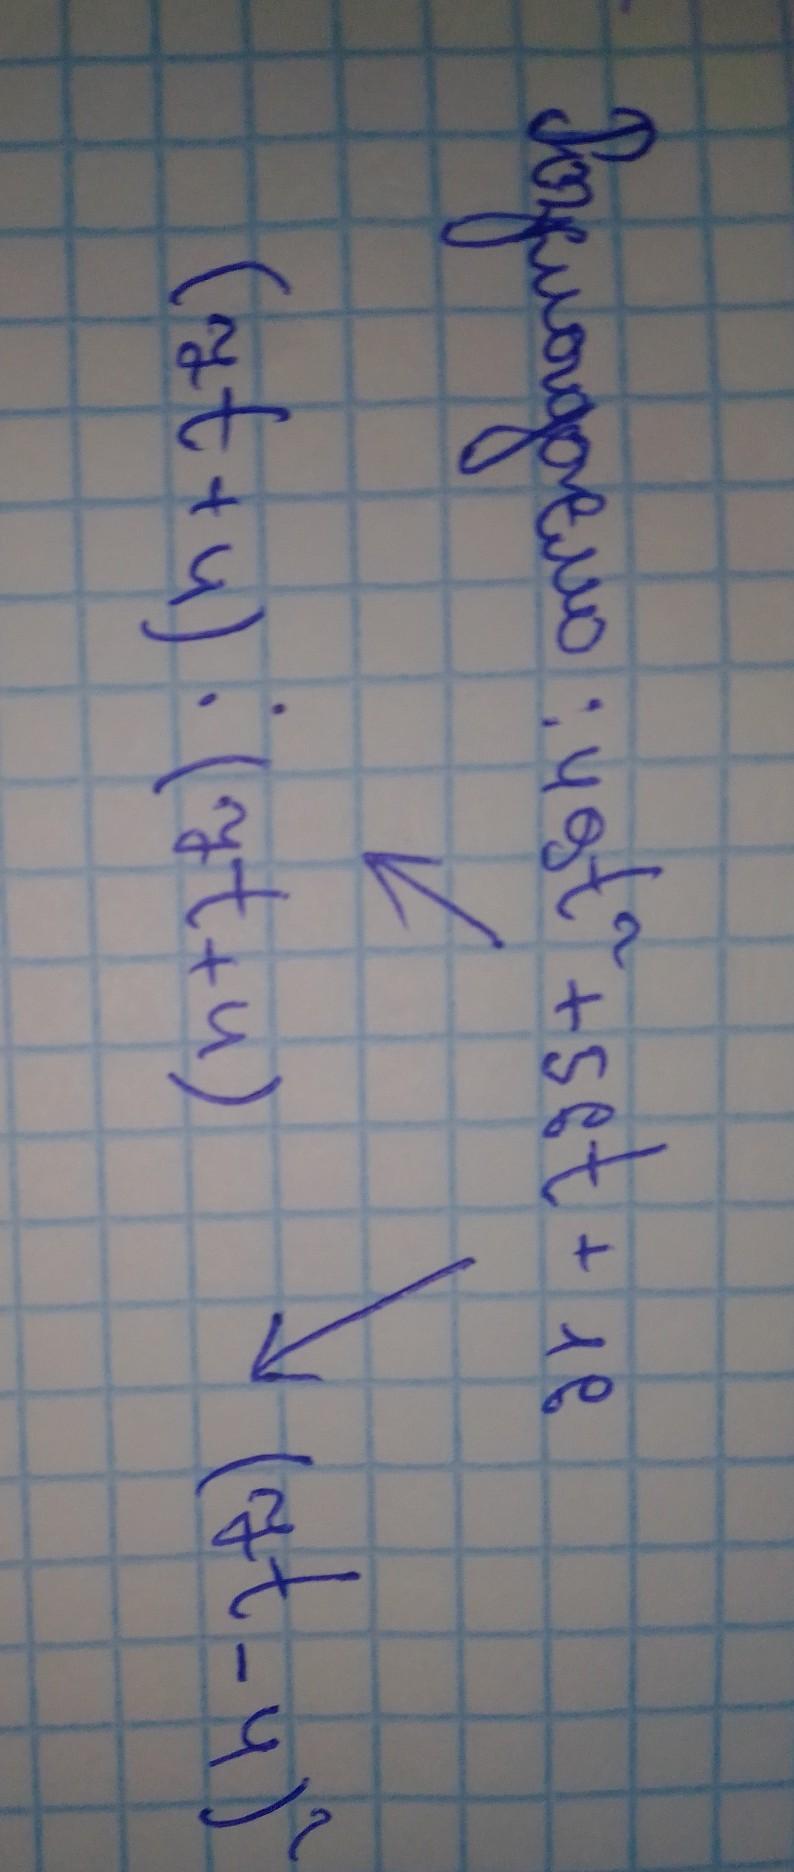 Розкладаємо : 49t² + 56t + 16
(7t + 4) · (7t + 4) (7t - 4)²